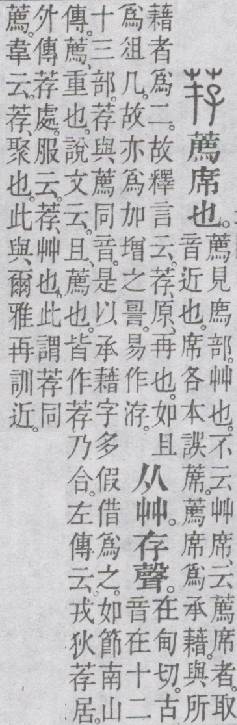 荐 薦席也。薦見廌部。艸也。不云艸席、云薦席者。取
音近也。席各本誤蓆。薦席爲承藉。與所
藉者爲二。故釋言云。荐、原、再也。如且
爲俎几。故亦爲加增之䛐。易作洊。
从艸。存聲。在甸切。古
音在十二
十三部。荐與薦同音。是以承藉字多假借爲之。如節南山
傳。薦、重也。說文云。且、薦也。皆作荐乃合。左傳云。戎狄荐居。
外傳荐處。服云。荐、艸也。此謂荐同
薦。韋云。荐、聚也。此與爾雅再訓近。